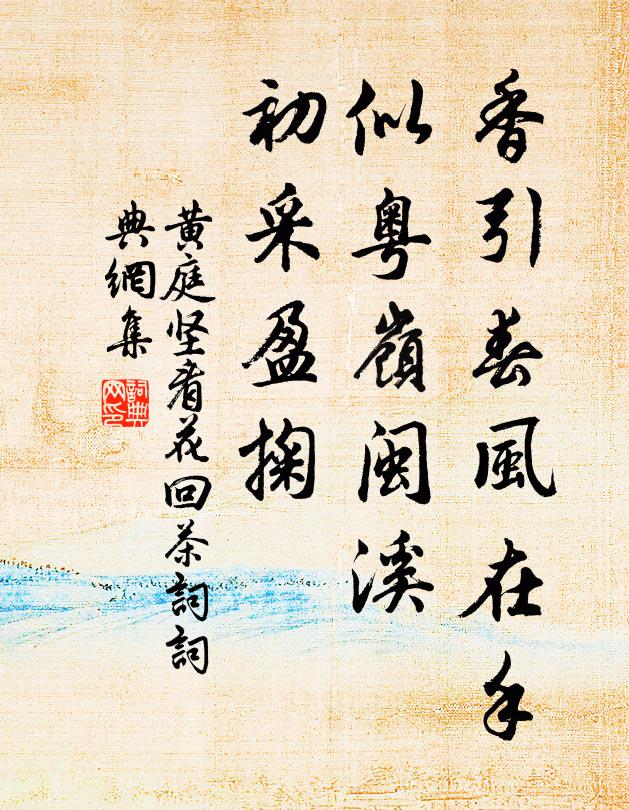 香引春風在手
似粵嶺閩溪
初采盈掬
黄庭坚看花回茶詞詞
典網集
詞典网印